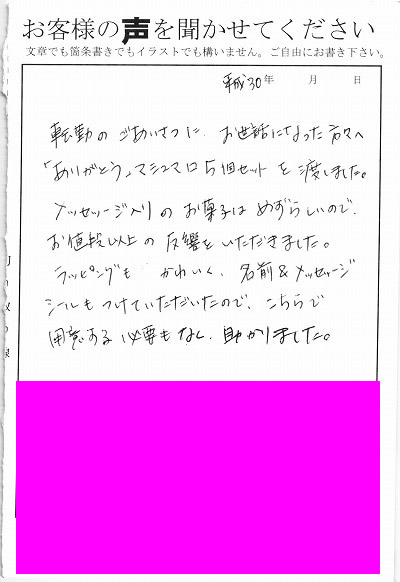 お客様の声を聞かせてください
文章でも箇条書きでもイラストでも構いません。ご自由にお書き下さい。
平成30年 月 日
転勤のごあいさつに、お世話になった方々へ
「ありがとう」マシュマロ5個セットを渡しました。
メッセージ入りのお菓子はめずらしいので、
お値段以上の反響をいただきました。
ラッピングも かわいく、名前&メッセージ
シールもつけていただいたので、こちらで
用意する必要もなく、助かりました。